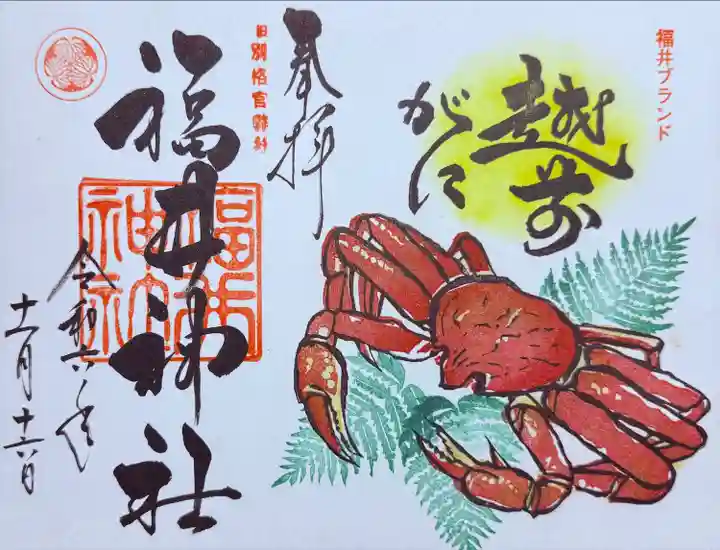 福井ブランド
越前
がに
奉拝
旧別格官幣社
福井神社
福井
神社
令和六年
十一月十六日